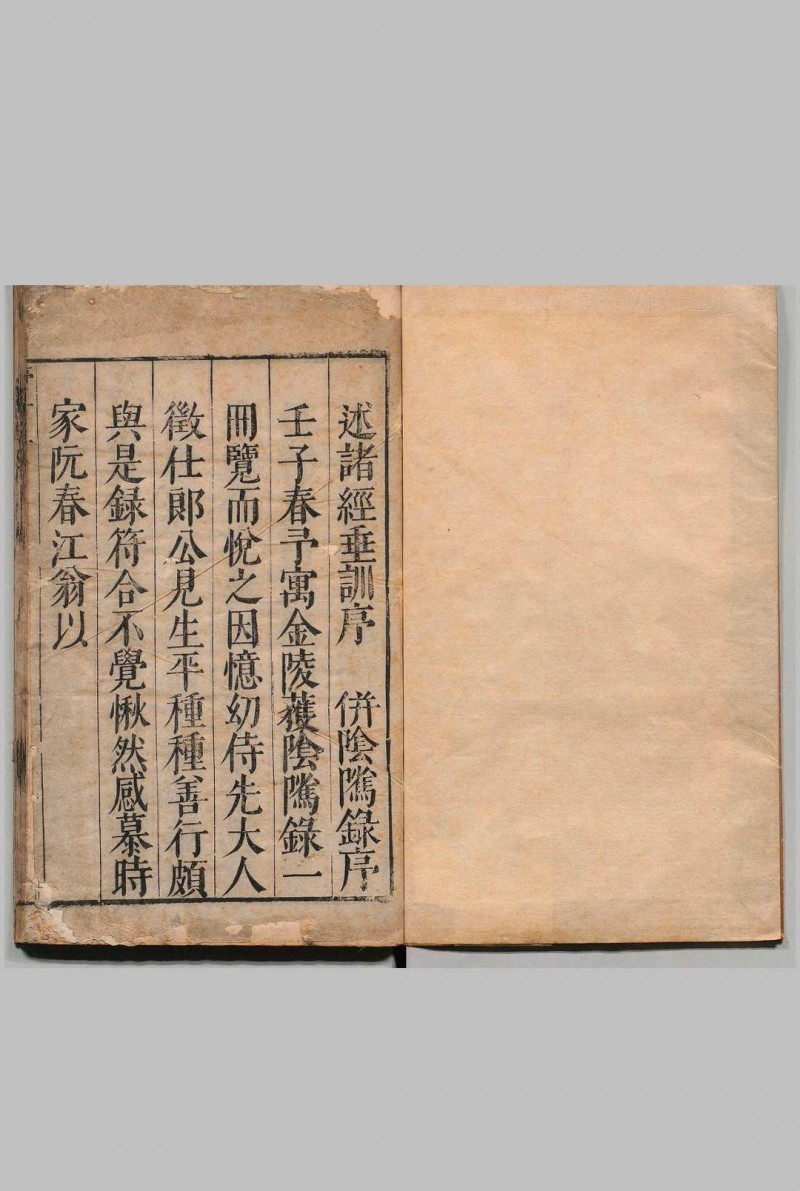 述諸經垂訓序　併陰隲錄序
壬子春予寓金陵蒦陰隲錄一
冊覽而悅之因憶幼侍先大人
徵仕郎公見生平種種善行頗
與是録符合不覺愀然感慕時
家阮春江翁以